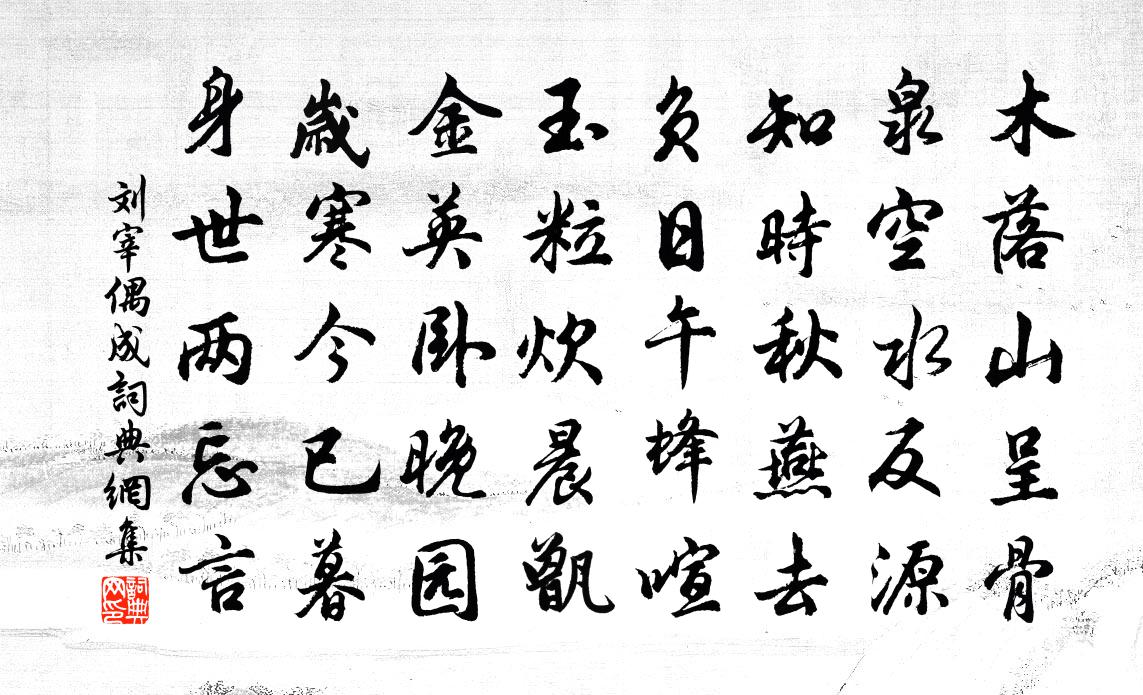 木落山呈骨
泉空水反源
知時秋燕去
负日午蜂喧
玉粒炊晨甑
金英卧晚园
歳寒今已暮
身世两忘言
刘宰偶成詞典網集
詞典网印